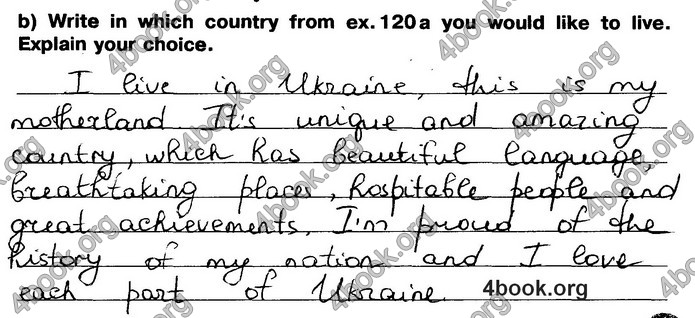 b) Write in which country from ex. 120 a you would like to live.
Explain your choice.
I live in Ukraine, this is my
motherland. It's unique and amazing
country, which has beautiful language,
breathtaking places, hospitable people and
great achievements. I'm proud of the
history of my nation and I love
each part of Ukraine.
4book.org